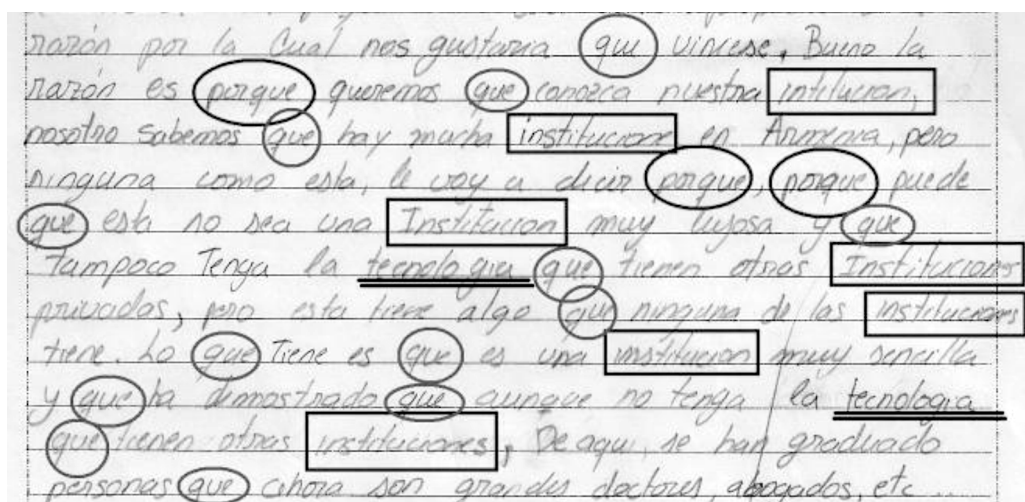 razón por la Cual nos gustaria que viniese, Bueno la
razón es porque queremos que conozca nuestra intitucion,
nosotro sabemos que hay mucha institucione en Armenia, pero
ninguna como esta, le voy a decir porque, porque puede
que esta no sea una Institucion muy lujosa y que
tampoco Tenga la tecnologia que tienen otras Instituciones
privadas, pero esta tiene algo que ninguna de las instituciones
tiene. Lo que Tiene es que es una institucion muy sencilla
y que ha demostrado que aunque no tenga la tecnologia
que tienen otras instituciones, De aqui, se han graduado
personas que ahora son grandes doctores, abogados, etc